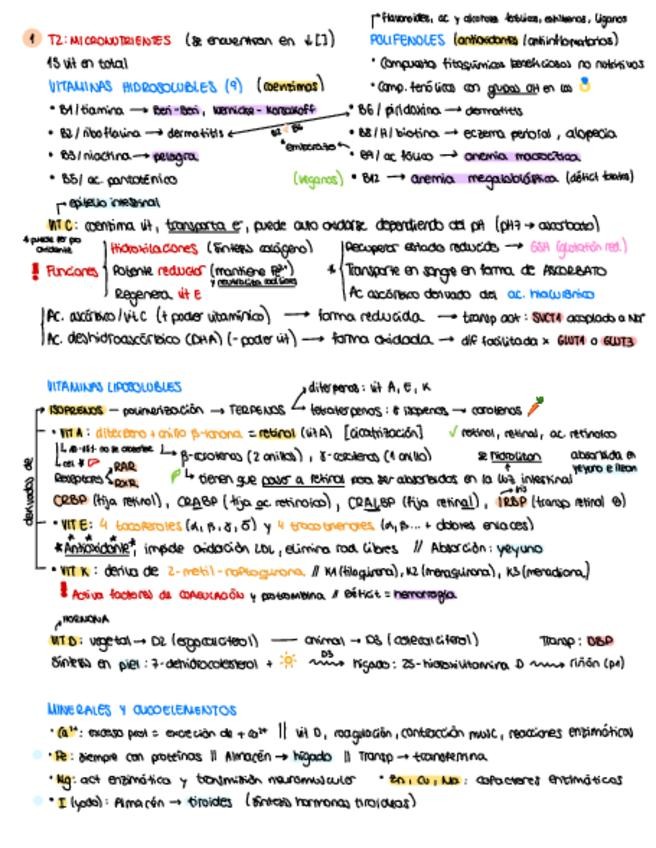 flavonoides, ac y alcoholes fenólicos, estilbenos, lignanos
1 T2: MICRONUTRIENTES (se encuentran en ↓[])
POLIFENOLES (antioxidantes / antiinflamatorios)
13 vit en total
• Compuestos fitoquímicos beneficiosos no nutritivos
VITAMINAS HIDROSOLUBLES (9) (coenzimas)
• Comp. fenólicos con grupos OH en los
• B1/tiamina → Beri-Beri, Wernicke-Korsakoff
• B6/piridoxina → dermatitis
• B2/riboflavina → dermatitis
B2 B6
• B8/H/biotina → eczema perioral, alopecia
• B3/niacina → pelagra
*embarazo
• B9/ac fólico → anemia macrocítica
• B5/ac. pantoténico
(veganos) • B12 → anemia megaloblástica (déficit folatos)
epitelio intestinal
VIT C: coenzima vit, transporta e⁻, puede auto oxidarse dependiendo del pH (pH7 → ascorbato)
! Funciones
Hidroxilaciones (síntesis colágeno)
Potente reductor (mantiene Fe²⁺)
y neutraliza radicales
Regenera vit E
* Recuperar estado reducido → GSH (glutatión red.)
Transporte en sangre en forma de ASCORBATO
Ac ascórbico derivado del ac. hialurónico
Ac. ascórbico/vit C (+ poder vitamínico) → forma reducida → transp act: SVCT1 acoplado a Na⁺
Ac. deshidroascórbico (DHA) (- poder vit) → forma oxidada → dif facilitada x GLUT1 o GLUT3
VITAMINAS LIPOSOLUBLES
diterpenos: vit A, E, K
ISOPRENOS — polimerización → TERPENOS
tetraterpenos: 8 isoprenos → carotenos
derivados de
• VIT A: diterpeno + anillo β-ionona = retinol (vit A) [cicatrización] ✓ retinol, retinal, ac retinoico
β-carotenos (2 anillos), γ-carotenos (1 anillo)
se hidrolizan
absorbida en yeyuno e íleon
Receptores RAR RXR
tienen que pasar a retinal para ser absorbidos en la luz intestinal
CRBP (fija retinol), CRABP (fija ac retinoico), CRALBP (fija retinal), IRBP (transp retinal
• VIT E: 4 tocoferoles (α, β, γ, δ) y 4 tocotrienoles (α, β... + dobles enlaces)
*Antioxidante*, impide oxidación LDL, elimina rad. libres // Absorción: yeyuno
• VIT K: deriva de 2-metil-naftoquinona // K1 (filoquinona), K2 (menaquinona), K3 (menadiona)
! Activa factores de COAGULACIÓN y protrombina // Déficit = hemorragia
HORMONA
VIT D: vegetal → D2 (ergocalciferol) — animal → D3 (colecalciferol) Transp: DBP
Síntesis en piel: 7-dehidrocolesterol + D3 hígado: 25-hidroxivitamina D riñón (p4)
MINERALES Y OLIGOELEMENTOS
• Ca²⁺: exceso prot = excreción de + Ca²⁺ || vit D, coagulación, contracción musc, reacciones enzimáticas
• Fe: siempre con proteínas || Almacén → hígado || Transp → transferrina
• Mg: act enzimática y transmisión neuromuscular • Zn, Cu, Mo: cofactores enzimáticos
• I (yodo): Almacén → tiroides (síntesis hormonas tiroideas)